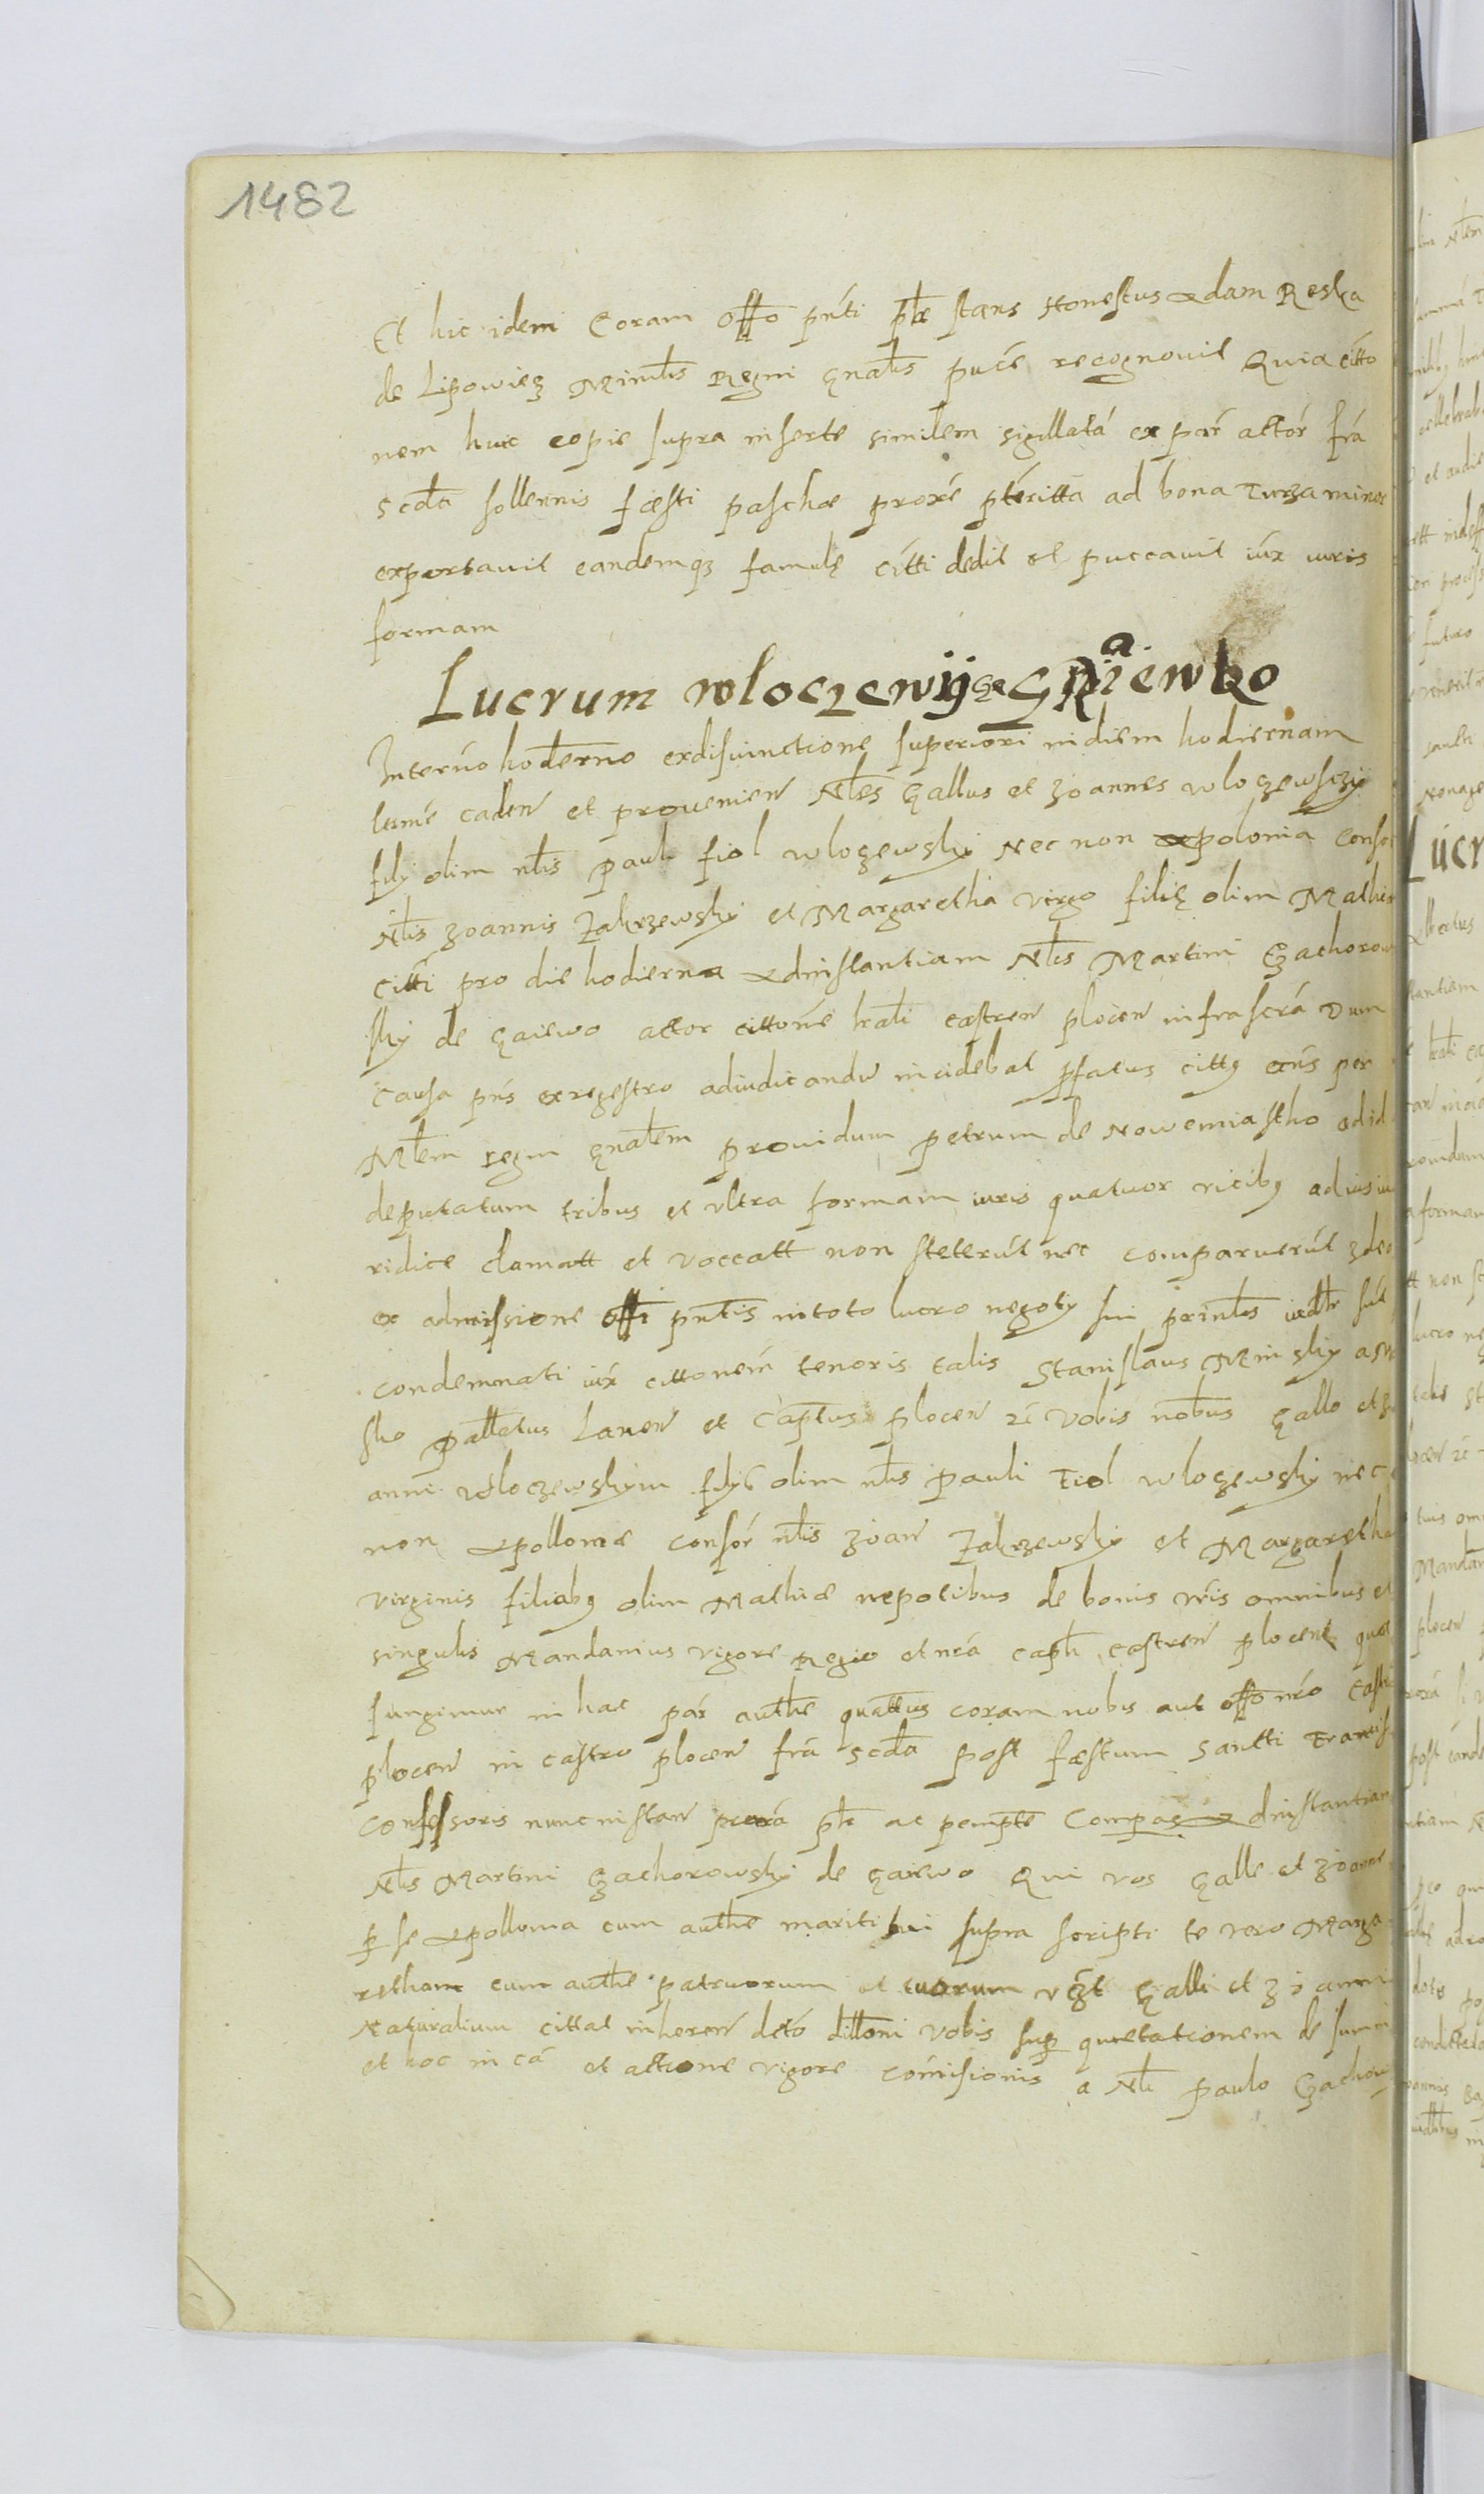 1482
Et hic idem Coram Offo pnti ple stans Honestus Adam Reska
de Lipowiez Minlis Regni gnalis puce recognovit Quia citto
nem huic copie supra inserte similem sigillatá ex par actor fra
scda sollennis fæsti paschæ proxe pteritta ad bona Turza minor
exportavit eandemqz famulę citti dedit et puccavit iux iuris
formam
Lucrum wloczewijsc Gaiewko
Interno hoderno exdisiunctione superiori in diem hodiernam
legme caden et provenien Nles Gallus et Joannes wloczewsczy
filij olim nlis pauli fiol wloczewskij Nec non Apolonia Conso
Nlis Joannis Zakrzewskij et Margaretha virgo filię olim Mathie
Citti pro die hodierna Adinstantiam Nlis Martini Gzachorow
skij de Gaiewo actor cittone krali castren plocen infrascra Dum
Causa pns ex regestro adiudicandu incidebat pfatus cittus ecns per
Mlem regni gnalem providum petrum de Nowemiastho ad id
deputatum tribus et ultra formam iuris quatuor vicibus ad ius iu
ridice clamatt et voccatt non steterut nec comparuerut Jdeo
ex admissione offi pntis in toto lucro negotij sui prinlis iudlr sut
condemnati iux cittonem tenoris talis Stanislaus Minskij a M
sko pallatus Lanen et Captus plocen zc Vobis nobus Gallo et Jo
anni wloczewskijm filijs olim nlis Pauli Tiol wloczewskij nec
non Apollonie Consor nlis Joan Zakrzewskij et Margaretha
virginis filiabus olim Mathiæ nepotibus de bonis vris omnibus et
singulis Mandamus vigore Regio et nra capli castren plocene qua
fungimur in hac par authe quattus coram nobis aut offo nro Cast
plocen in castro plocen fra scda post fæstum Sancti Francis
Confessoris nunc instan ple ac pempte Compa Adinstantiam
Nlis Martini Gzachorowskij de Gaiewo Qui vos Galle et Joanne
p se Apollonia cum authe mariti sui supra scripti te vero Marga
retham cum authe patruorum et tuorum vzt Galli et Joanni
Naturalium cittat inheren deto dilloni vobis sup quietationem de summ
et hoc in ca et actione vigore comisionis a Nli Paulo Gzachow